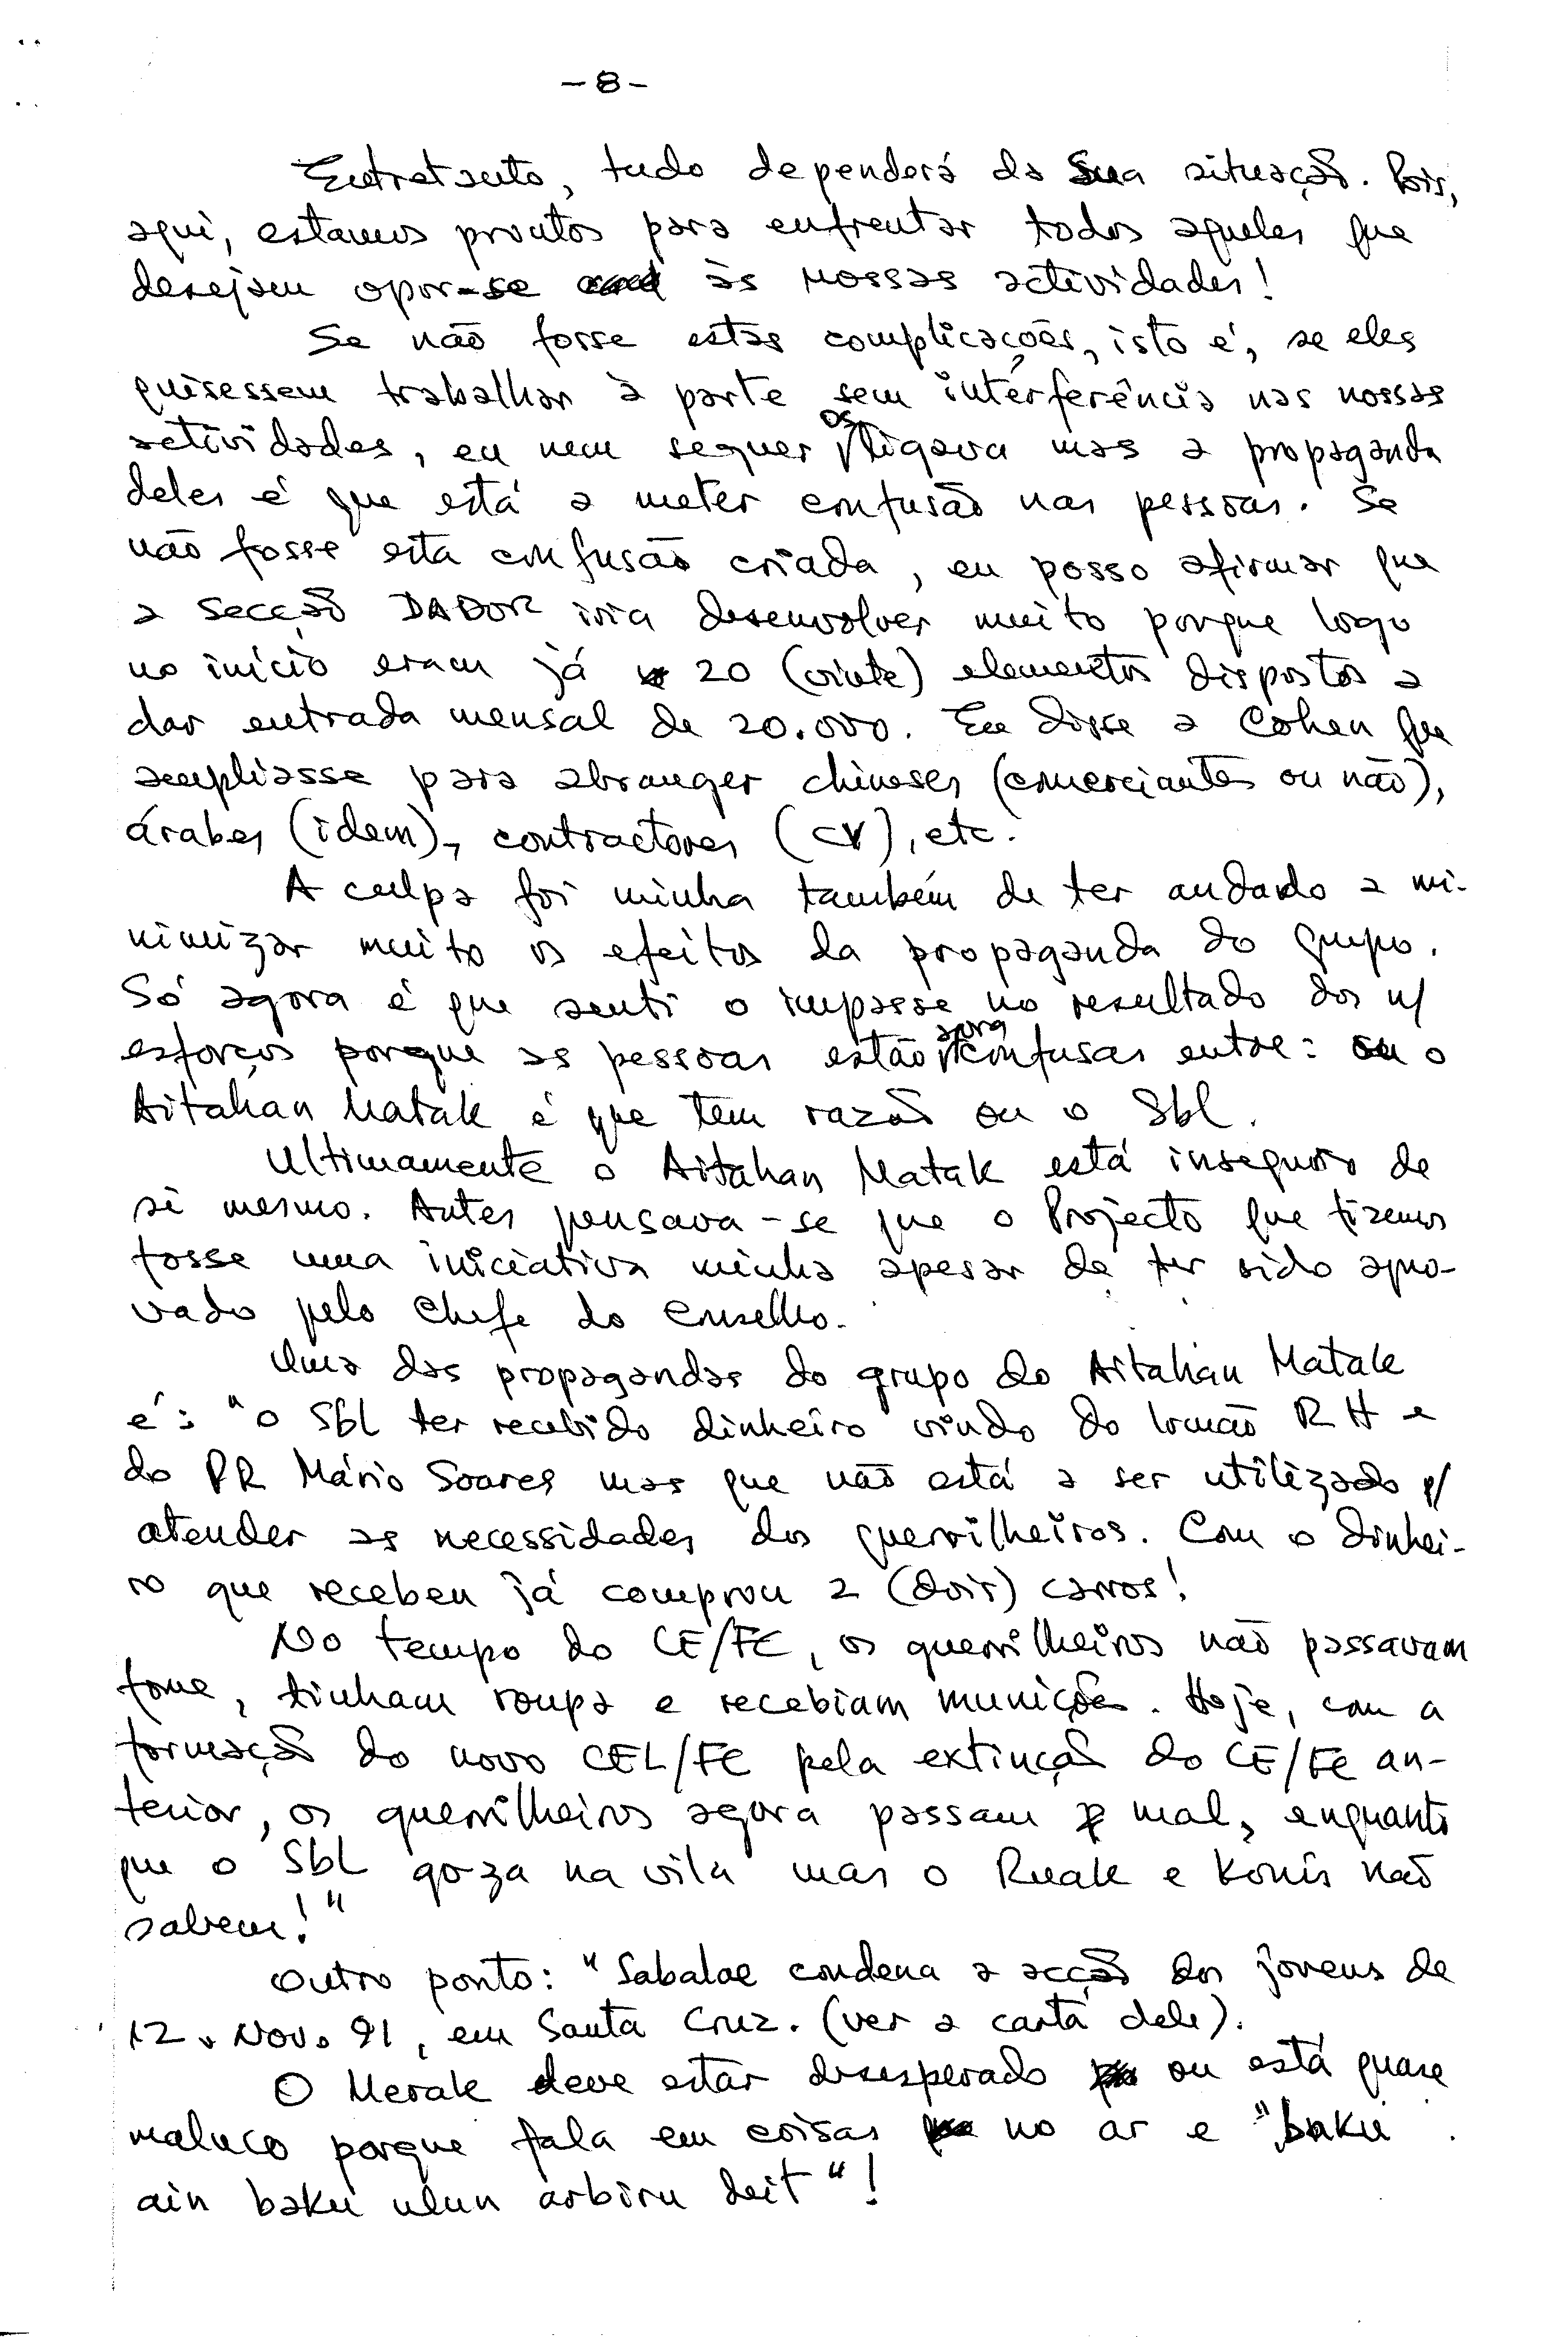 -8-
Entretanto, tudo dependerá da Sua situação. Pois,
aqui, estamos prontos para enfrentar todos aqueles que
desejam opor-se às nossas actividades!
Se não fosse estas complicações, isto é, se eles
quisessem trabalhar à parte sem interferência nas nossas
actividades, eu nem sequer os ligava mas a propaganda
deles é que está a meter confusão nas pessoas. Se
não fosse esta confusão criada, eu posso afirmar que
a secção DADOR iria desenvolver muito porque logo
no início eram já 20 (vinte) elementos dispostos a
dar entrada mensal de 20.000. Eu disse a Cohen que
ampliasse para abranger chineses (comerciantes ou não),
árabes (idem), contractores (CV), etc.
A culpa foi minha também de ter andado a mi-
nimizar muito os efeitos da propaganda do grupo.
Só agora é que senti o impasse no resultado dos n/
esforços porque as pessoas estão agora confusas entre: o
Aitahan Matak é que tem razão ou o Sbl.
Ultimamente o Aitahan Matak está inseguro de
si mesmo. Antes pensava-se que o Projecto que fizemos
fosse uma iniciativa minha apesar de ter sido apro-
vado pelo Chefe do Conselho.
Uma das propagandas do grupo do Aitahan Matak
é: "o Sbl ter recebido dinheiro vindo do Irmão RH e
do PR Mário Soares mas que não está a ser utilizado p/
atender as necessidades dos guerrilheiros. Com o dinhei-
ro que recebeu já comprou 2 (dois) carros!
No tempo do CE/FE, os guerrilheiros não passavam
fome, tinham roupa e recebiam munições. Hoje, com a
formação do novo CEL/FE pela extinção do CE/FE an-
terior, os guerrilheiros agora passam mal, enquanto
que o Sbl goza na vila mas o Ruak e Konis não
sabem!"
Outro ponto: "Sabalae condena a acção dos jovens de
12. Nov. 91, em Santa Cruz. (ver a carta dele).
O Merak deve estar desesperado ou está quase
maluco porque fala em coisas no ar e "baku
ain baku ulun arbiru deit"!